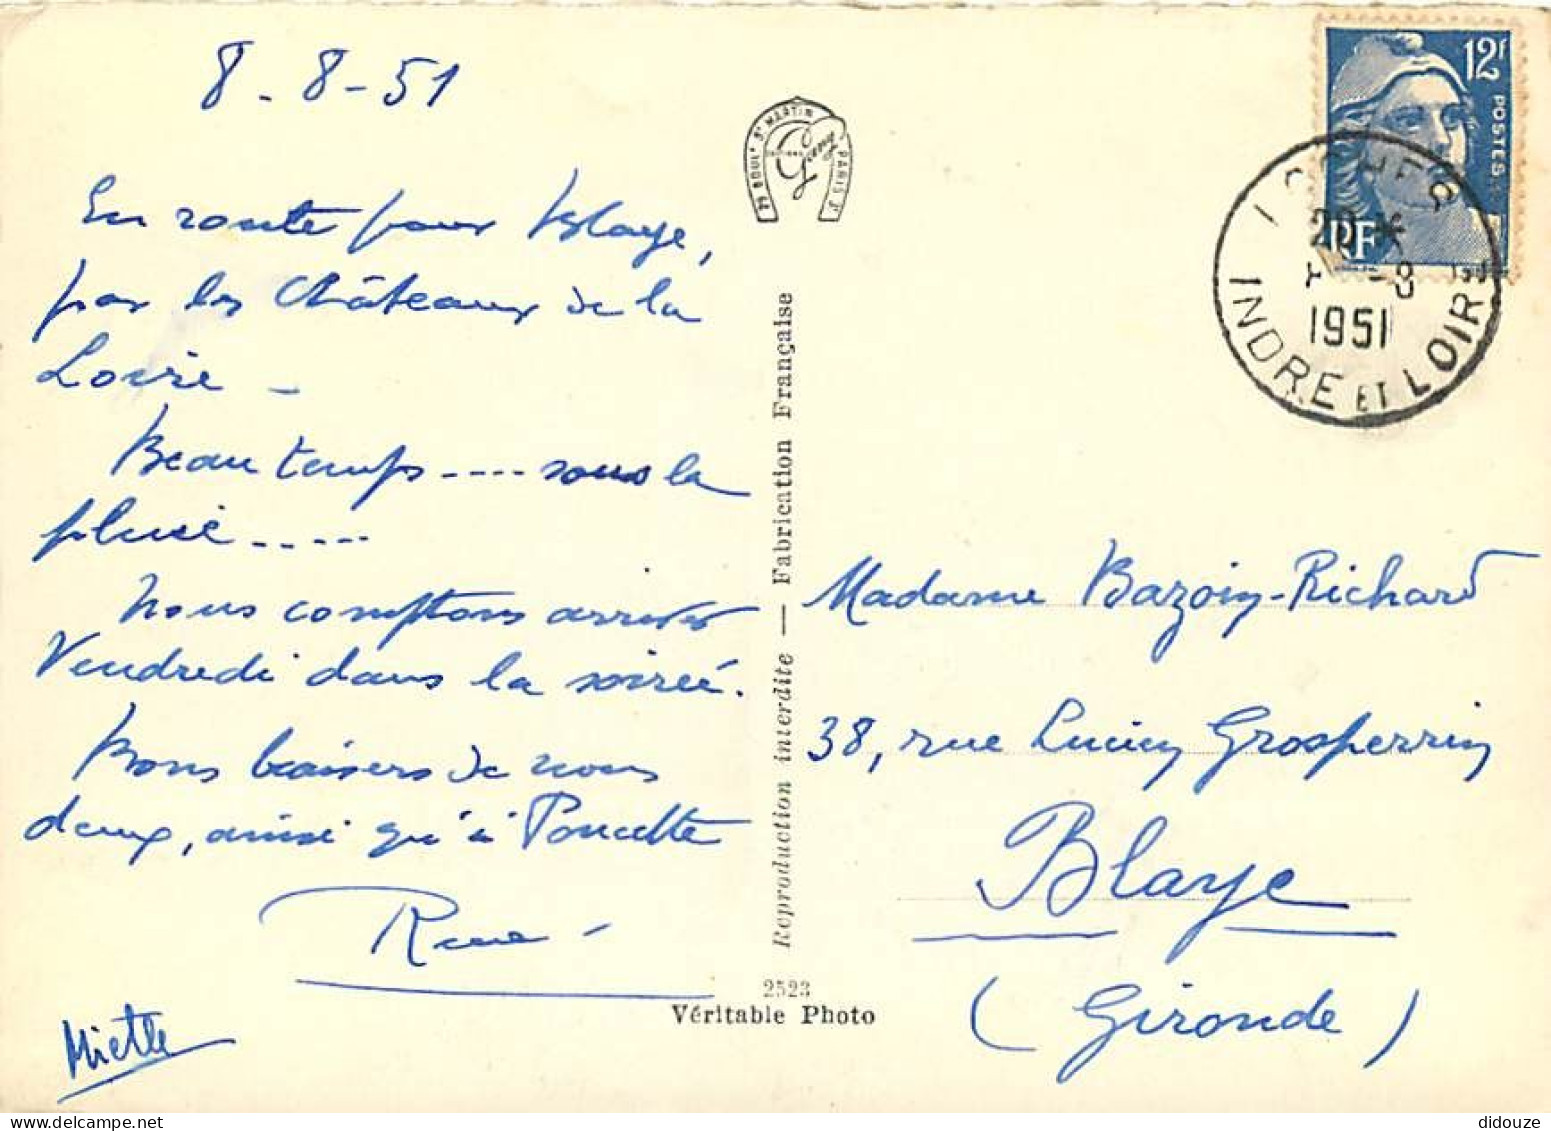 8-8-51
En route pour Blaye,
par les Châteaux de la
Loire -
Beau temps .... sous la
pluie .....
Nous comptons arriver
Vendredi dans la soirée.
Bons baisers de nous
deux, ainsi qu'à Poucette
René -
Miette
29 BOULd ST MARTIN PARIS 3e
EDITIONS
Guy
Reproduction interdite — Fabrication Française
2523
Véritable Photo
12f
POSTES
RF
LOCHES
20 *
8 -8
1951
INDRE ET LOIRE
Madame Bazoin-Richard
38, rue Lucien Grosperrin
Blaye
(Gironde)
didouze